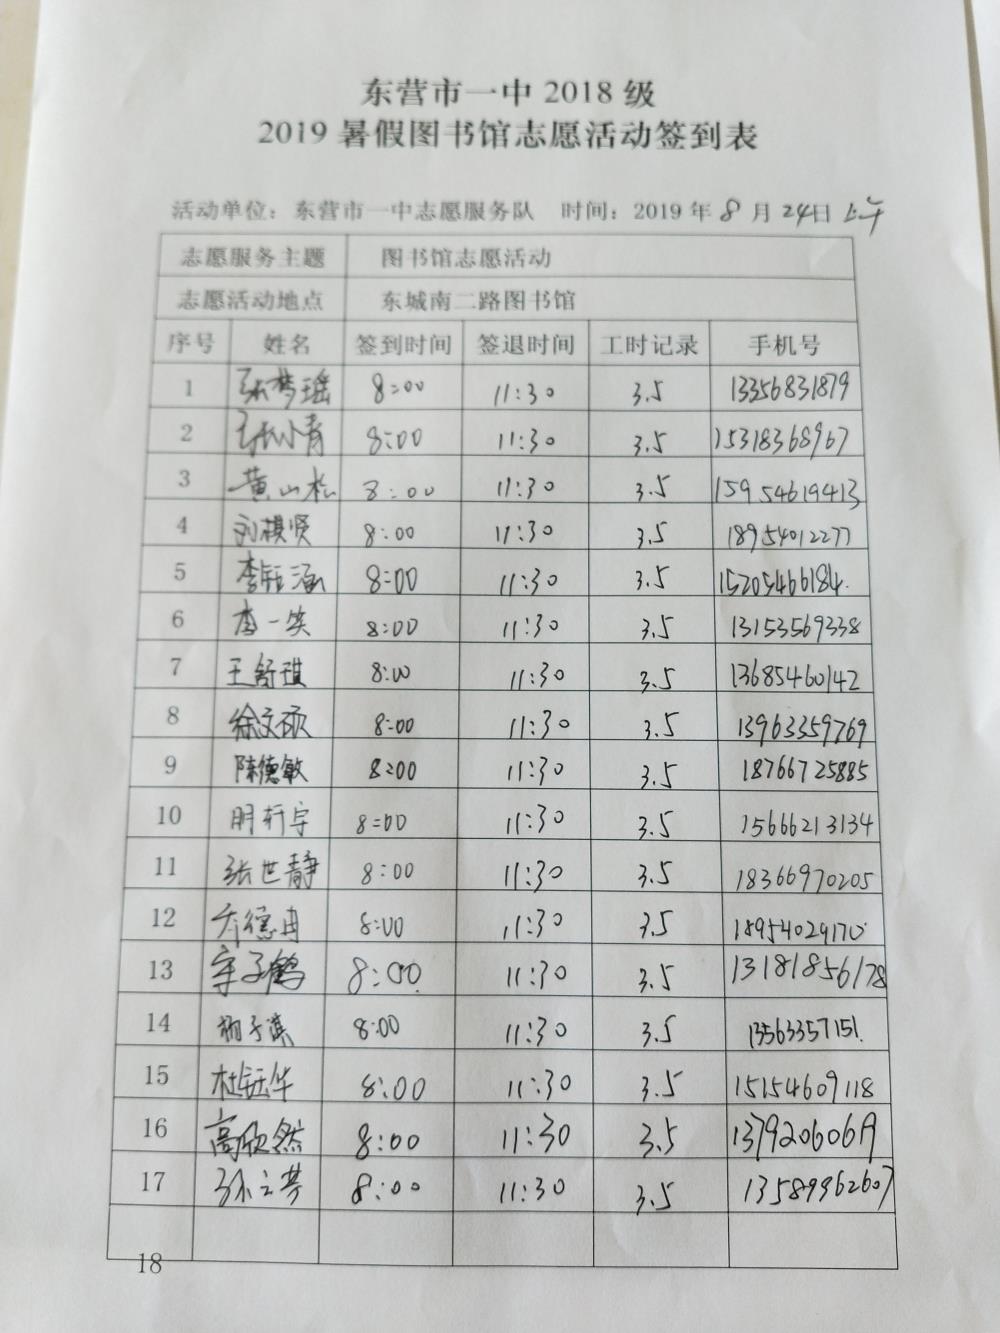 东营市一中 2018 级
2019 暑假图书馆志愿活动签到表
活动单位：东营市一中志愿服务队 时间：2019 年 8 月 24日 上午
志愿服务主题 图书馆志愿活动
志愿活动地点 东城南二路图书馆
序号 姓名 签到时间 签退时间 工时记录 手机号
1 张梦瑶 8:00 11:30 3.5 13356831879
2 张小青 8:00 11:30 3.5 15318368967
3 黄山松 8:00 11:30 3.5 15954619413
4 刘祺贤 8:00 11:30 3.5 18954012277
5 李钰涵 8:00 11:30 3.5 15205466184
6 李一笑 8:00 11:30 3.5 13153569338
7 王舒琪 8:00 11:30 3.5 13685460142
8 徐文硕 8:00 11:30 3.5 13963359769
9 陈德敏 8:00 11:30 3.5 18766725885
10 明轩宇 8:00 11:30 3.5 15666213134
11 张世静 8:00 11:30 3.5 18366970205
12 乔德冉 8:00 11:30 3.5 18954029170
13 宋子鹤 8:00 11:30 3.5 13181856178
14 杨子淇 8:00 11:30 3.5 13563357151
15 杜钰华 8:00 11:30 3.5 15154609118
16 高欣然 8:00 11:30 3.5
17 8:00 11:30 3.5 13589962607
18